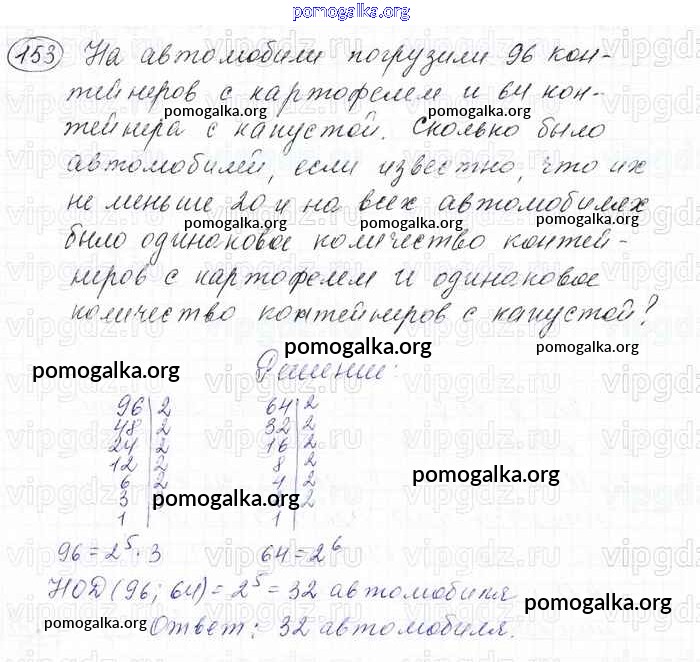 pomogalka.org
153 На автомобили погрузили 96 кон-
тейнеров с картофелем и 64 кон-
pomogalka.org pomogalka.org
тейнера с капустой. Сколько было
pomogalka.org
автомобилей, если известно, что их
не меньше 20 и на всех автомобилях
pomogalka.org pomogalka.org pomogalka.org
было одинаковое количество контей-
неров с картофелем и одинаковое
количество контейнеров с капустой?
pomogalka.org pomogalka.org
Решение:
pomogalka.org
96 | 2 64 | 2
48 | 2 32 | 2
24 | 2 16 | 2
12 | 2 8 | 2
pomogalka.org
6 | 2 4 | 2
3 | 2
pomogalka.org
1 | 1 |
96 = 2⁵ · 3 64 = 2⁶
НОД (96; 64) = 2⁵ = 32 автомобиля
pomogalka.org
pomogalka.org
Ответ: 32 автомобиля.
vipgdz.ru